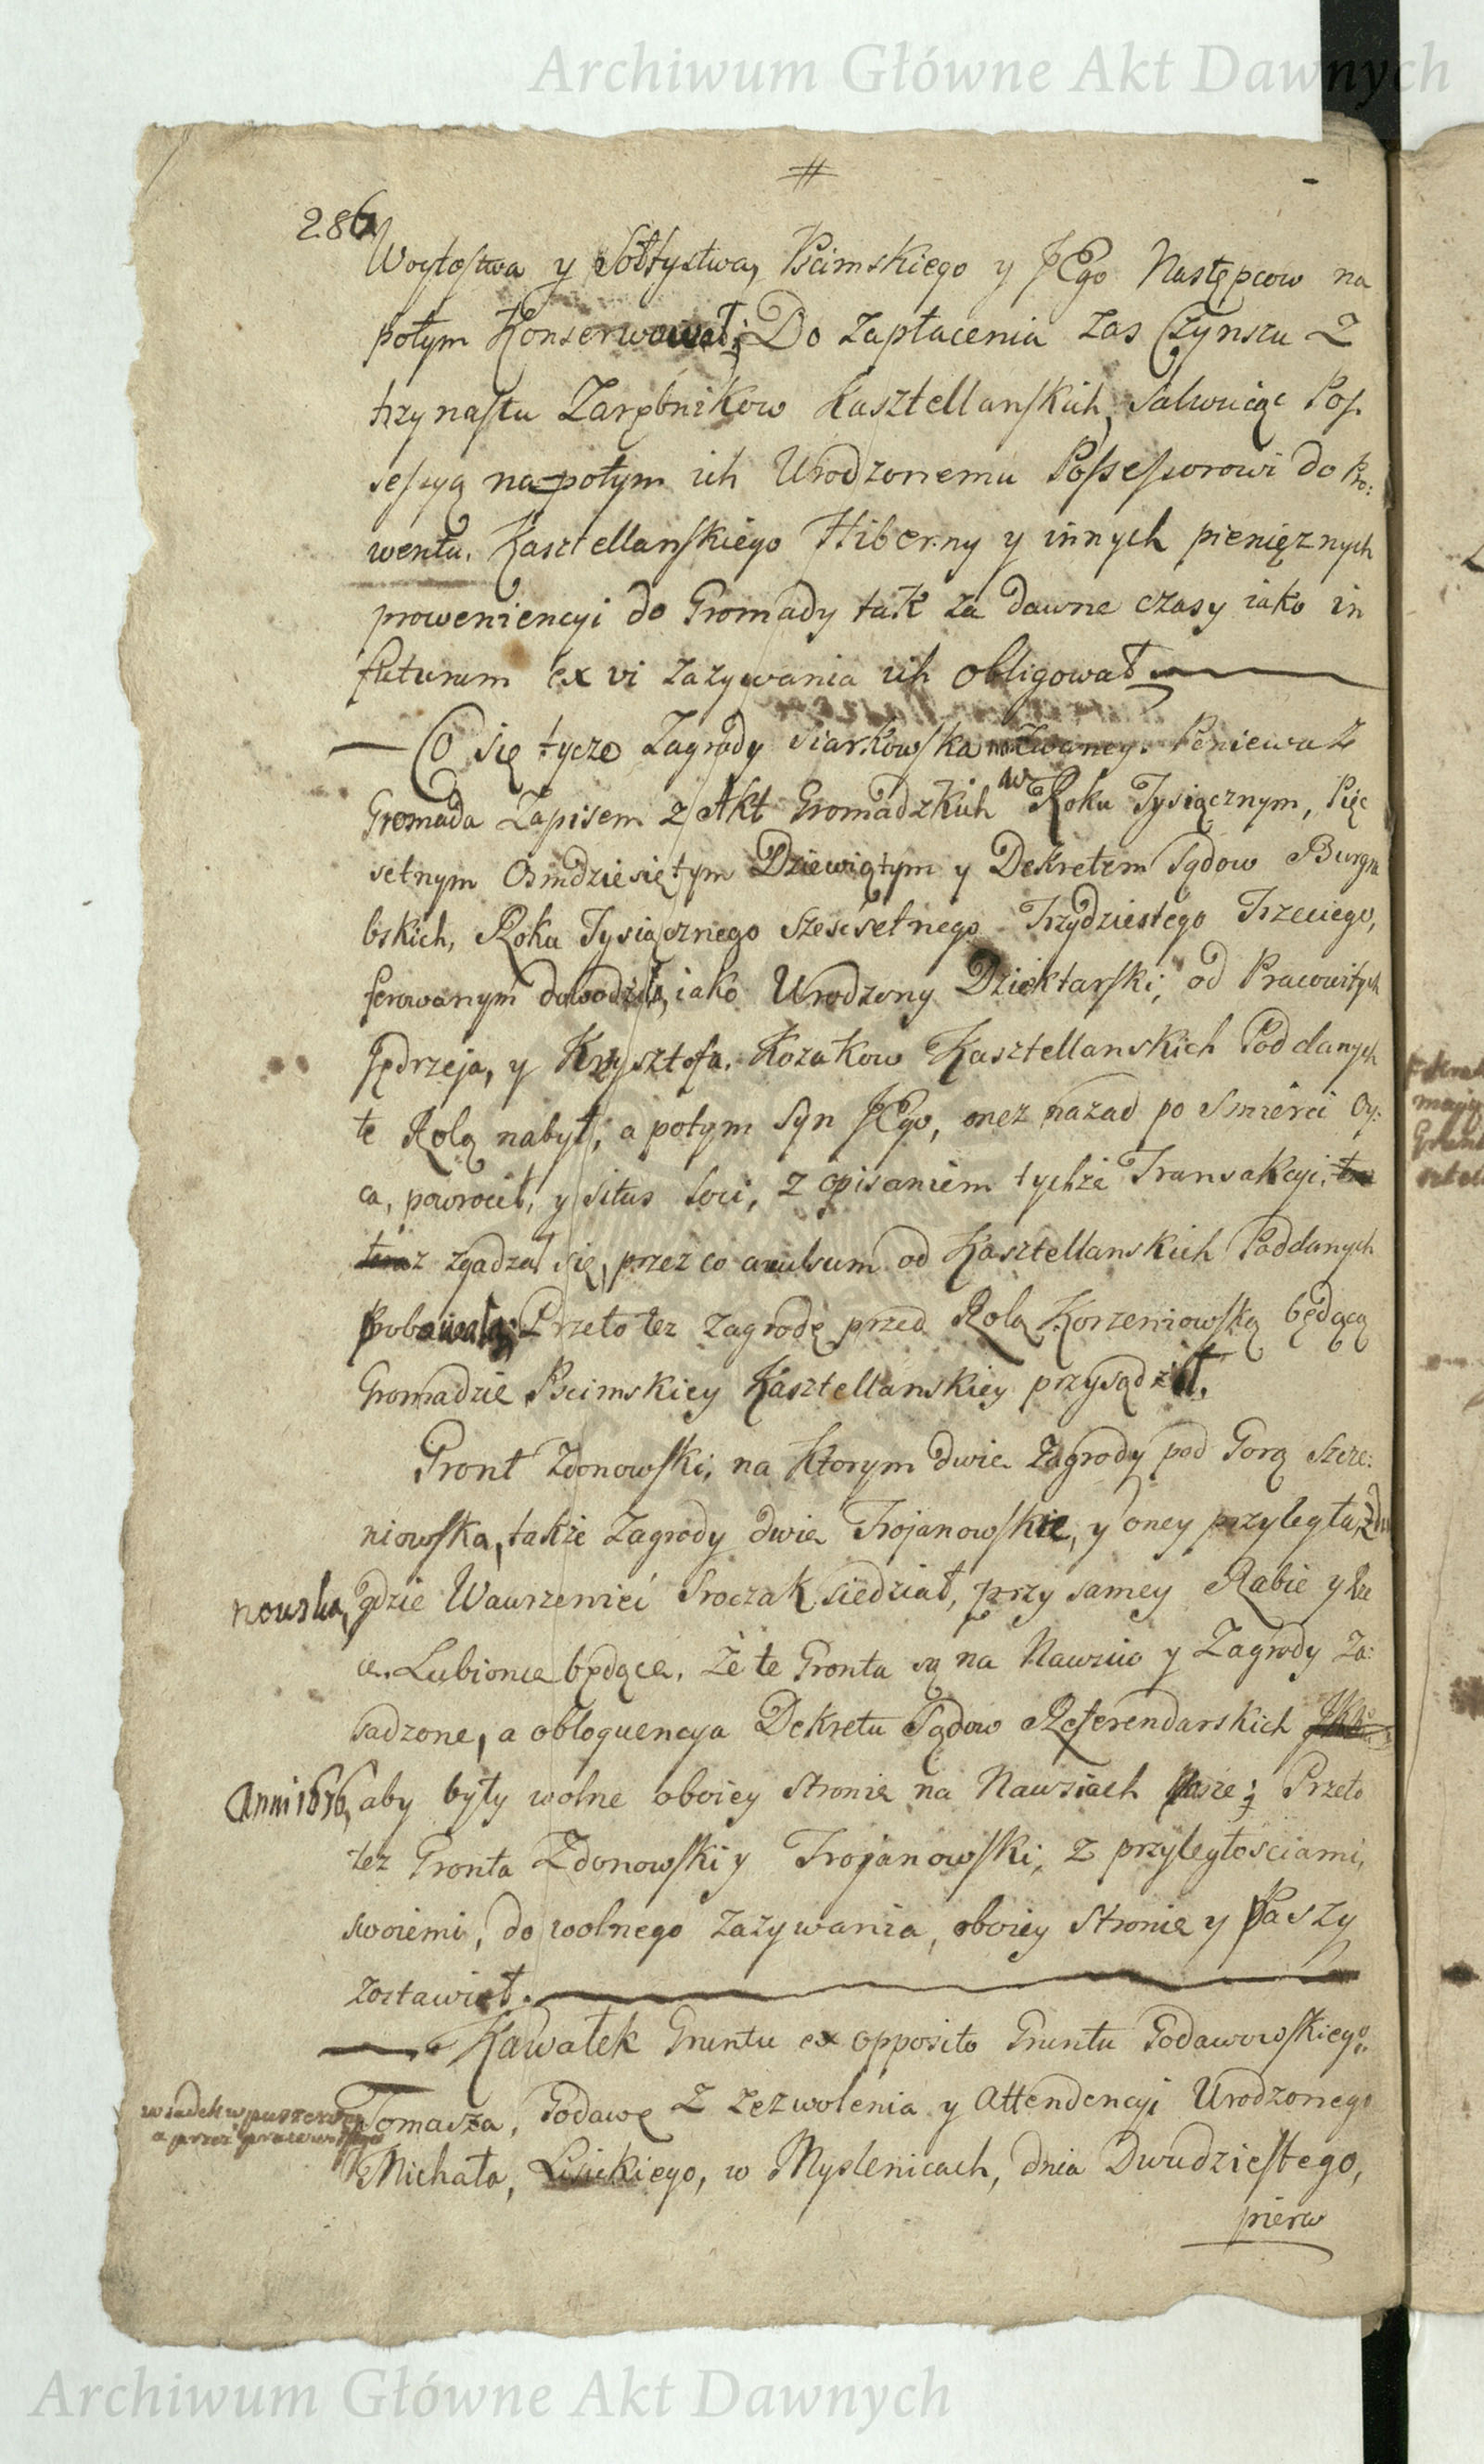 Archiwum Główne Akt Dawnych
#
286
Woytostwa y Sołtystwa, Pcimskiego y JEgo Następcow na
potym Konserwował; Do Zapłacenia zas Czynszu z
trzynastu Zarębnikow Kasztellanskich, salwuiąc Pos-
sessyą na potym ich Urodzonemu Possessorowi do Pro:
wentu. Kasztellanskiego Hiberny y innych pienięznych
proweniencyi do Gromady tak za dawne czasy iako in
futurum ex vi zazywania ich obligował.
Co się tycze Zagrody siarkowska nazwaney. Poniewaz
Gromada Zapisem z Akt Gromadzkich w Roku Tysiącznym, Pięc
setnym Osmdziesiątym Dziewiątym y Dekretem Sądow Burgra
bskich, Roku Tysiącznego Szescsetnego Trzydziestego Trzeciego,
ferowanym dowodziła, iako Urodzony Dziektarski, od Pracowitych
Jędrzeja, y Krzysztofa. Kozakow Kasztellanskich Poddanych
te Rolą nabył, a potym Syn JEgo, onez nazad po smierci Oy:
ca, powrocił, y situs loci, z opisaniem tychże Transakcyi,
teraz zgadzał się, przez co avulsum od Kasztellanskich Poddanych
probowała; Przeto tez Zagrodę przed Rolą Korzeniowską będącą
Gromadzie Pcimskiey Kasztellanskiey przysądził.
Gront Zdonowski, na Ktorym dwie Zagrody pod Gorą Szcze:
niowska, także Zagrody dwie Trojanowskie, y oney przyległa, Zdo
nowska, gdzie Wawrzeniec Sroczak siedział, przy samey Rabie y Rze
ce. Lubionce będące. Że te Gronta są na Nawsiu y Zagrody Za:
sadzone, a obloquencya Dekretu Sądow Referendarskich
Anni 1676, aby były wolne oboiey stronie na Nawsiach pasze; Przeto
tez Gronta Zdonowski y Trojanowski, z przyległosciami,
swoiemi, do wolnego zazywania, oboiey stronie y Paszy
zostawił.
Kawałek Gruntu ex opposito Gruntu Godawowskiego.
Tomasza, Godawę z zezwolenia y Attendencyi Urodzonego
Michała, Lisickiego, w Myslenicach, dnia Dwudziestego,
pierw
Archiwum Główne Akt Dawnych